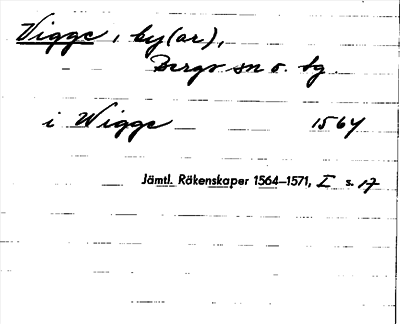 Vigge, by(ar),
Bergs sn o. tg.
i Wigge 1564
Jämtl. Räkenskaper 1564–1571, I s. 17